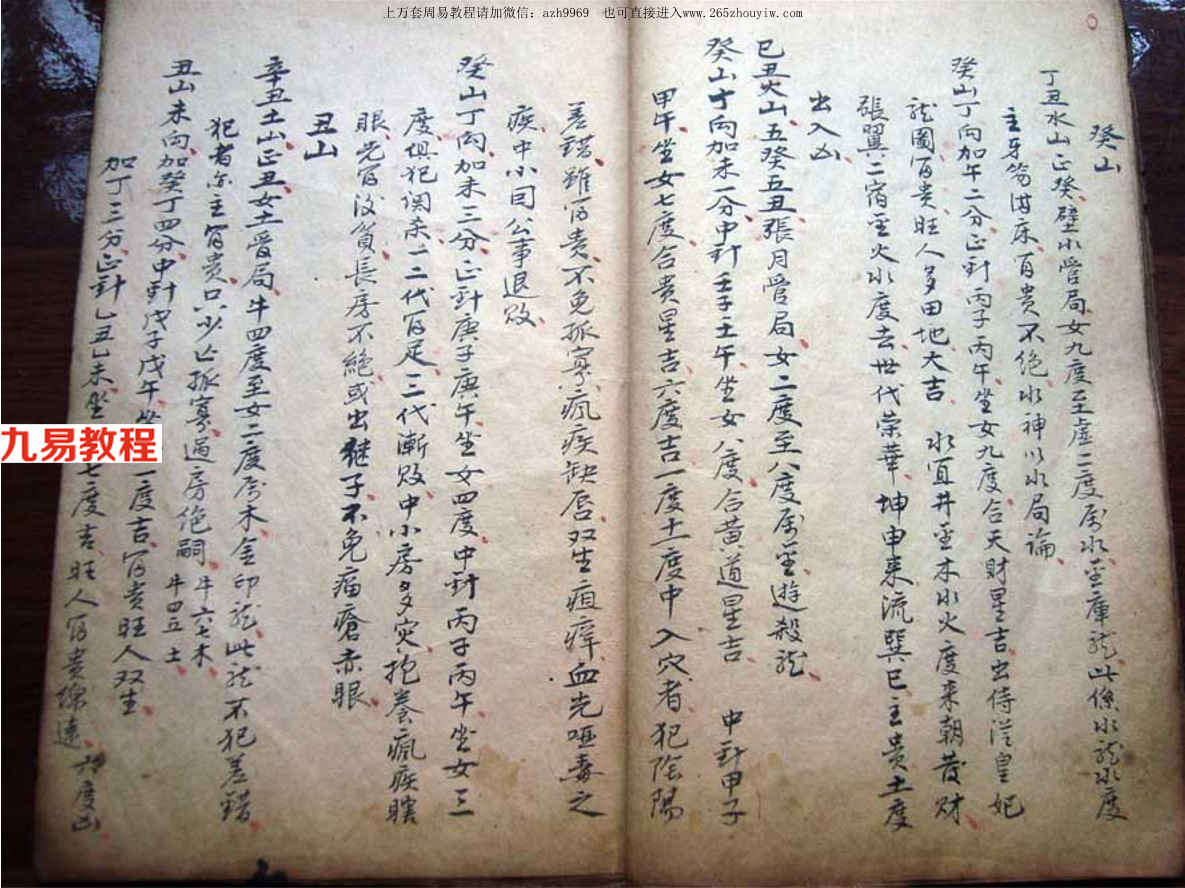 上万套周易教程请加微信：azh9969　也可直接进入www.265zhouyiw.com
癸山
丁丑水山正癸壁水管局女九度至虚二度属水金庫龍此係水龍水度
主牙笏滿床百貴不绝水神以水局論
癸山丁向加午二分正針丙子丙午坐女九度合天財星吉出侍從皇妃
龍圖富貴旺人多田地大吉　水宜井金木水火度来朝發财
張翼二宿金火水度去世代荣華坤申来流巽巳主貴土度
出入凶
己丑火山五癸五丑張月管局女二度至八度属金遊殺龍
癸山丁向加未一分中針壬子壬午坐女八度合黄道星吉　中針甲子
甲午坐女七度合貴星吉六度吉一度十一度中入穴者犯陰陽
差錯雖富贵不免孤寡瘋疾缺唇双生疽瘴血光哑毒之
疾中小同公事退败
癸山丁向加未三分正針庚子庚午坐女四度中針丙子丙午坐女三
度俱犯関杀一二代富足三代漸败中小房多灾抱養瘋疾瞎
眼先富後貧長房不絶或出继子不免瘟瘡赤眼
丑山
辛丑土山正丑女土管局牛四度至女二度属木金印龍此龍不犯差錯
犯者亦主富贵只少亡孤寡過房绝嗣　牛六七木
牛四五土
丑山未向加癸丁四分中針戊子戊午坐一度吉富贵旺人双生
加丁三分正針乙丑乙未坐七度吉旺人富貴绵遠　度凶
九易教程